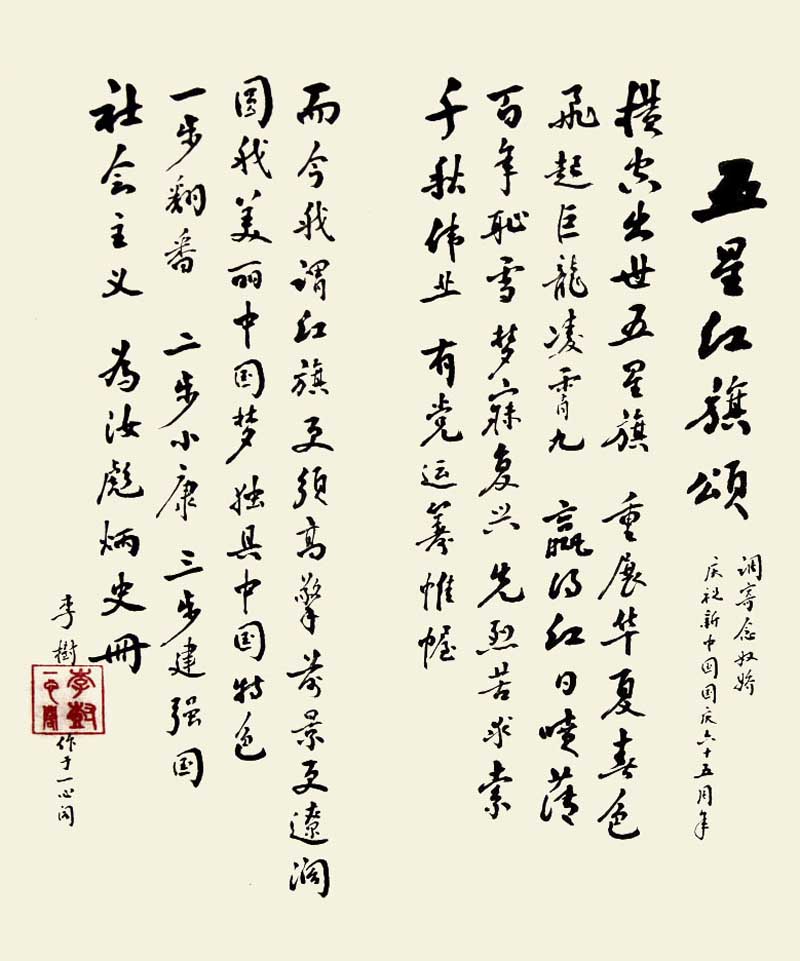 五星红旗颂
调寄念奴娇
庆祝新中国国庆六十五周年
横空出世五星旗 重展华夏春色
飛起巨龍凌霄九 赢得红日喷薄
百年耻雪梦寐复兴 先烈苦求索
千秋伟业 有党运筹帷幄
而今我谓红旗更须高擎 前景更遼阔
圆我美丽中国梦 独具中国特色
一步翻番 二步小康 三步建强国
社会主义 為汝彪炳史册
李樹
作于一心阁